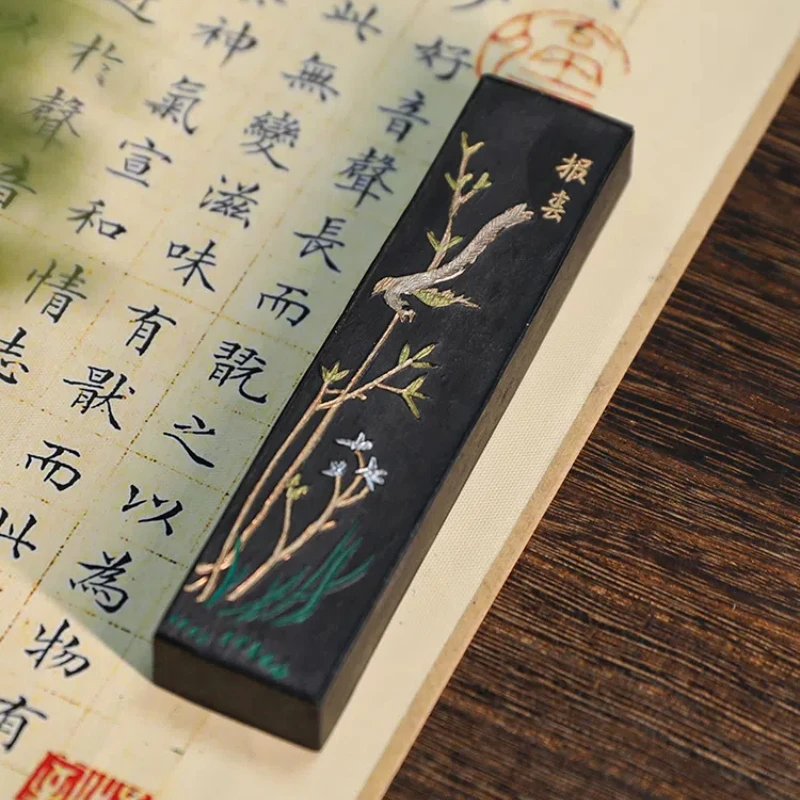 报春
好音聲長而翫之以為物有
此無變滋味有猒而此
神氣宣和情志
近於聲音